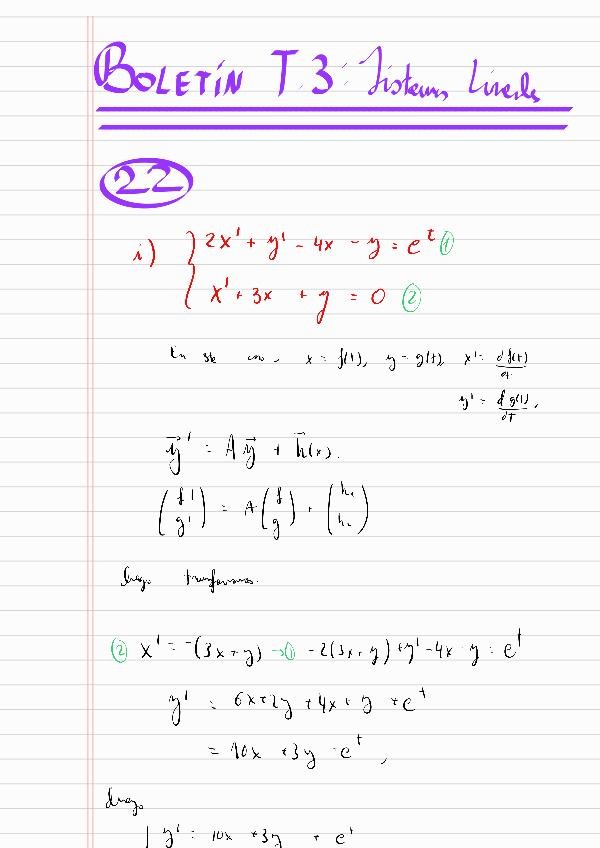 BOLETÍN T.3: Sistemas Lineales
22
i) { 2x' + y' - 4x - y = e^t ①
x' + 3x + y = 0 ②
En este caso, x = f(t), y = g(t), x' = df(t)/dt
y' = dg(t)/dt,
y⃗' = A y⃗ + h⃗(x).
(f' g') = A (f g) + (h₁ h₂)
Luego transformamos.
② x' = -(3x + y) → ① -2(3x + y) + y' - 4x - y = e^t
y' = 6x + 2y + 4x + y + e^t
= 10x + 3y + e^t,
Luego
{ y' = 10x + 3y + e^t